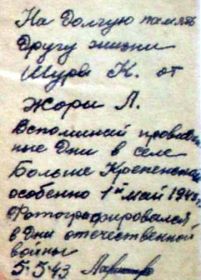 На Долгую память
Другу жизни
Шуры К. от
Жоры Л.
Вспоминай проведен
ные Дни в селе
Больше Крепенская
особенно 1ой май 1943г
Фотографировался
в Дни отечественной
войны
5.5.43